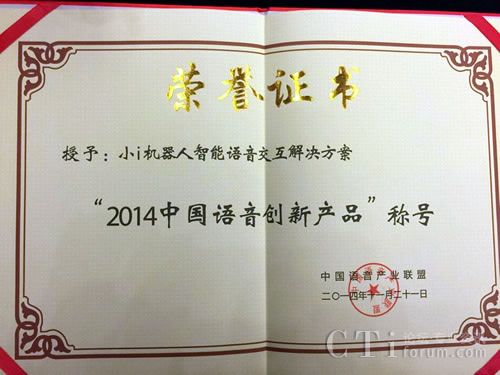 荣誉证书
授予：小i机器人智能语音交互解决方案
“2014中国语音创新产品”称号
中国语音产业联盟
二〇一四年十一月二十一日
CTi论坛
ctiforum.com